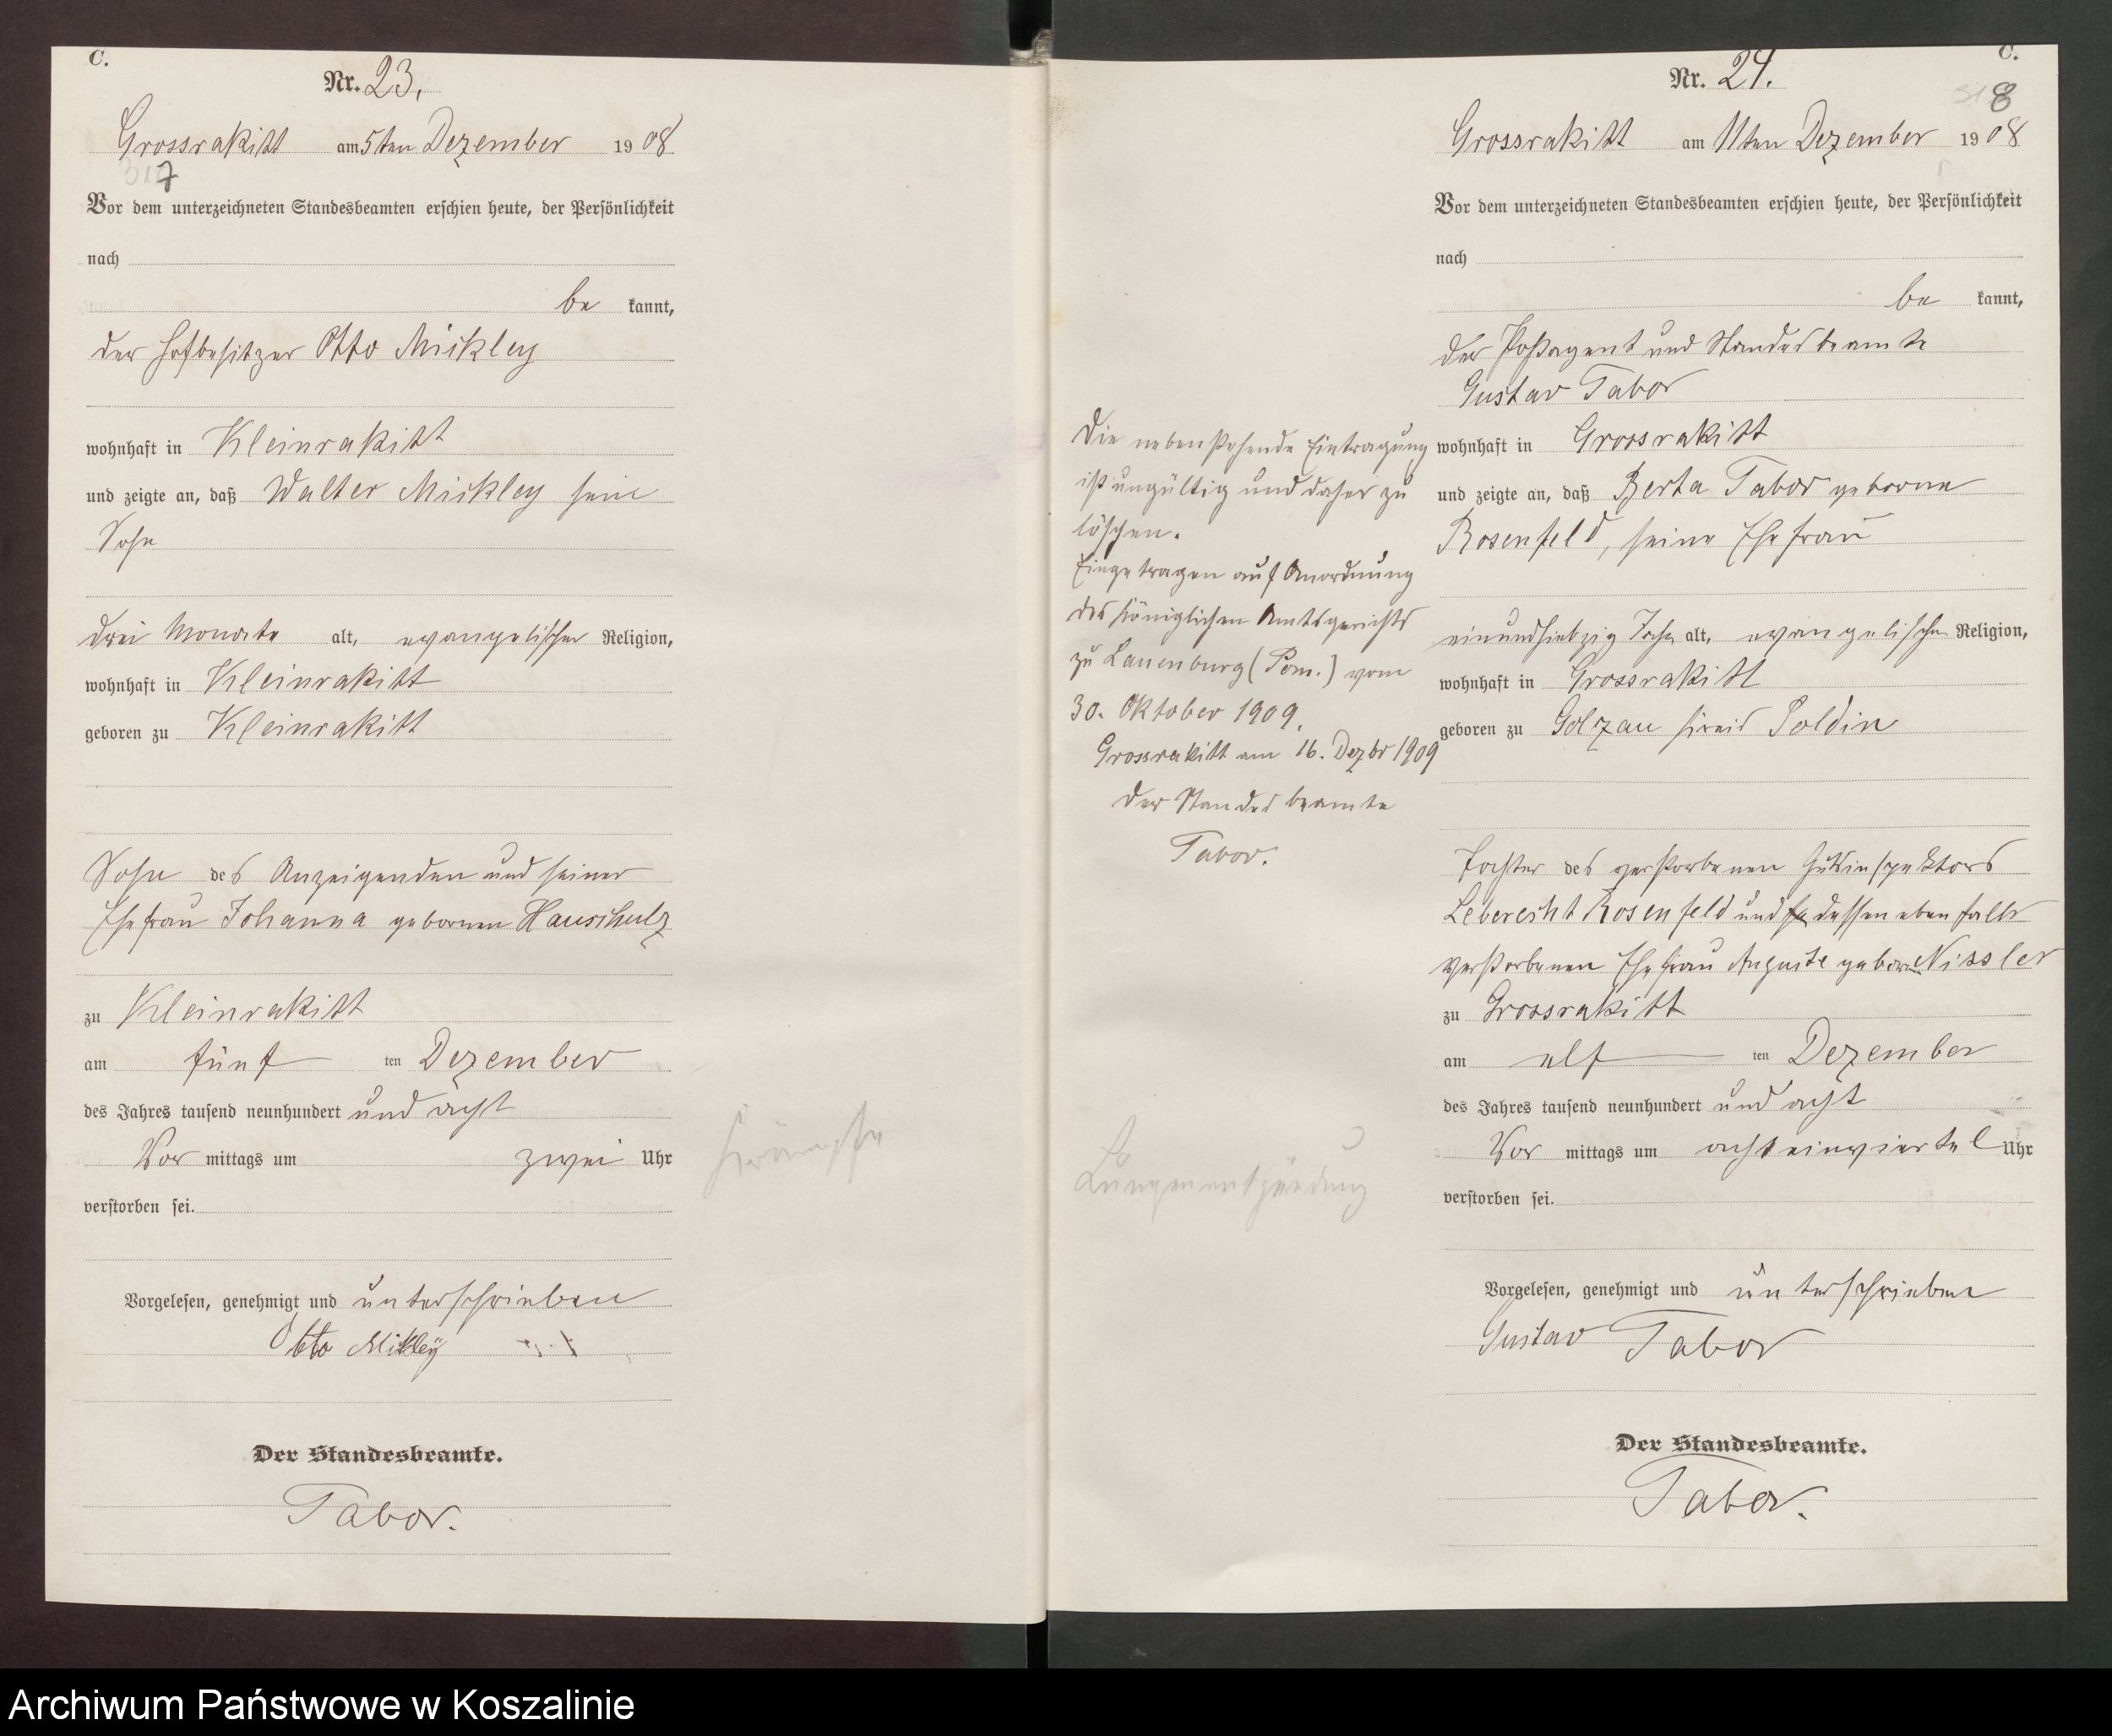 C.
Nr. 23.
Grossrakitt am 5ten Dezember 1908
7
Vor dem unterzeichneten Standesbeamten erschien heute, der Persönlichkeit
nach
be kannt,
der Hofbesitzer Otto Mickley
wohnhaft in Kleinrakitt
und zeigte an, daß Walter Mickley sein
Sohn
drei Monate alt, evangelischer Religion,
wohnhaft in Kleinrakitt
geboren zu Kleinrakitt
Sohn des Anzeigenden und seiner
Ehefrau Johanna gebornen Hauschulz
zu Kleinrakitt
am fünf ten Dezember
des Jahres tausend neunhundert und acht
Vor mittags um zwei Uhr
verstorben sei.
Krämpfe
Vorgelesen, genehmigt und unterschrieben
Otto Mickley
Der Standesbeamte.
Tabor.
C.
Nr. 24.
8
Grossrakitt am 11ten Dezember 1908
Vor dem unterzeichneten Standesbeamten erschien heute, der Persönlichkeit
nach
be kannt,
der Postagent und Standesbeamte
Gustav Tabor
wohnhaft in Grossrakitt
und zeigte an, daß Berta Tabor geborne
Rosenfeld, seine Ehefrau
einundsiebzig Jahr alt, evangelischer Religion,
wohnhaft in Grossrakitt
geboren zu Golzau Kreis Soldin
Tochter des verstorbenen Gutsinspektors
Leberecht Rosenfeld und dessen ebenfalls
verstorbenen Ehefrau Auguste geborne Nissler
zu Grossrakitt
am elf ten Dezember
des Jahres tausend neunhundert und acht
Vor mittags um acht einviertel Uhr
verstorben sei.
Vorgelesen, genehmigt und unterschrieben
Gustav Tabor
Der Standesbeamte.
Tabor.
Die nebenstehende Eintragung
ist ungültig und daher zu
löschen.
Eingetragen auf Anordnung
des Königlichen Amtsgerichts
zu Lauenburg (Pom.) vom
30. Oktober 1909.
Grossrakitt am 16. Dezbr 1909
Der Standesbeamte
Tabor.
Lungenentzündung
Archiwum Państwowe w Koszalinie